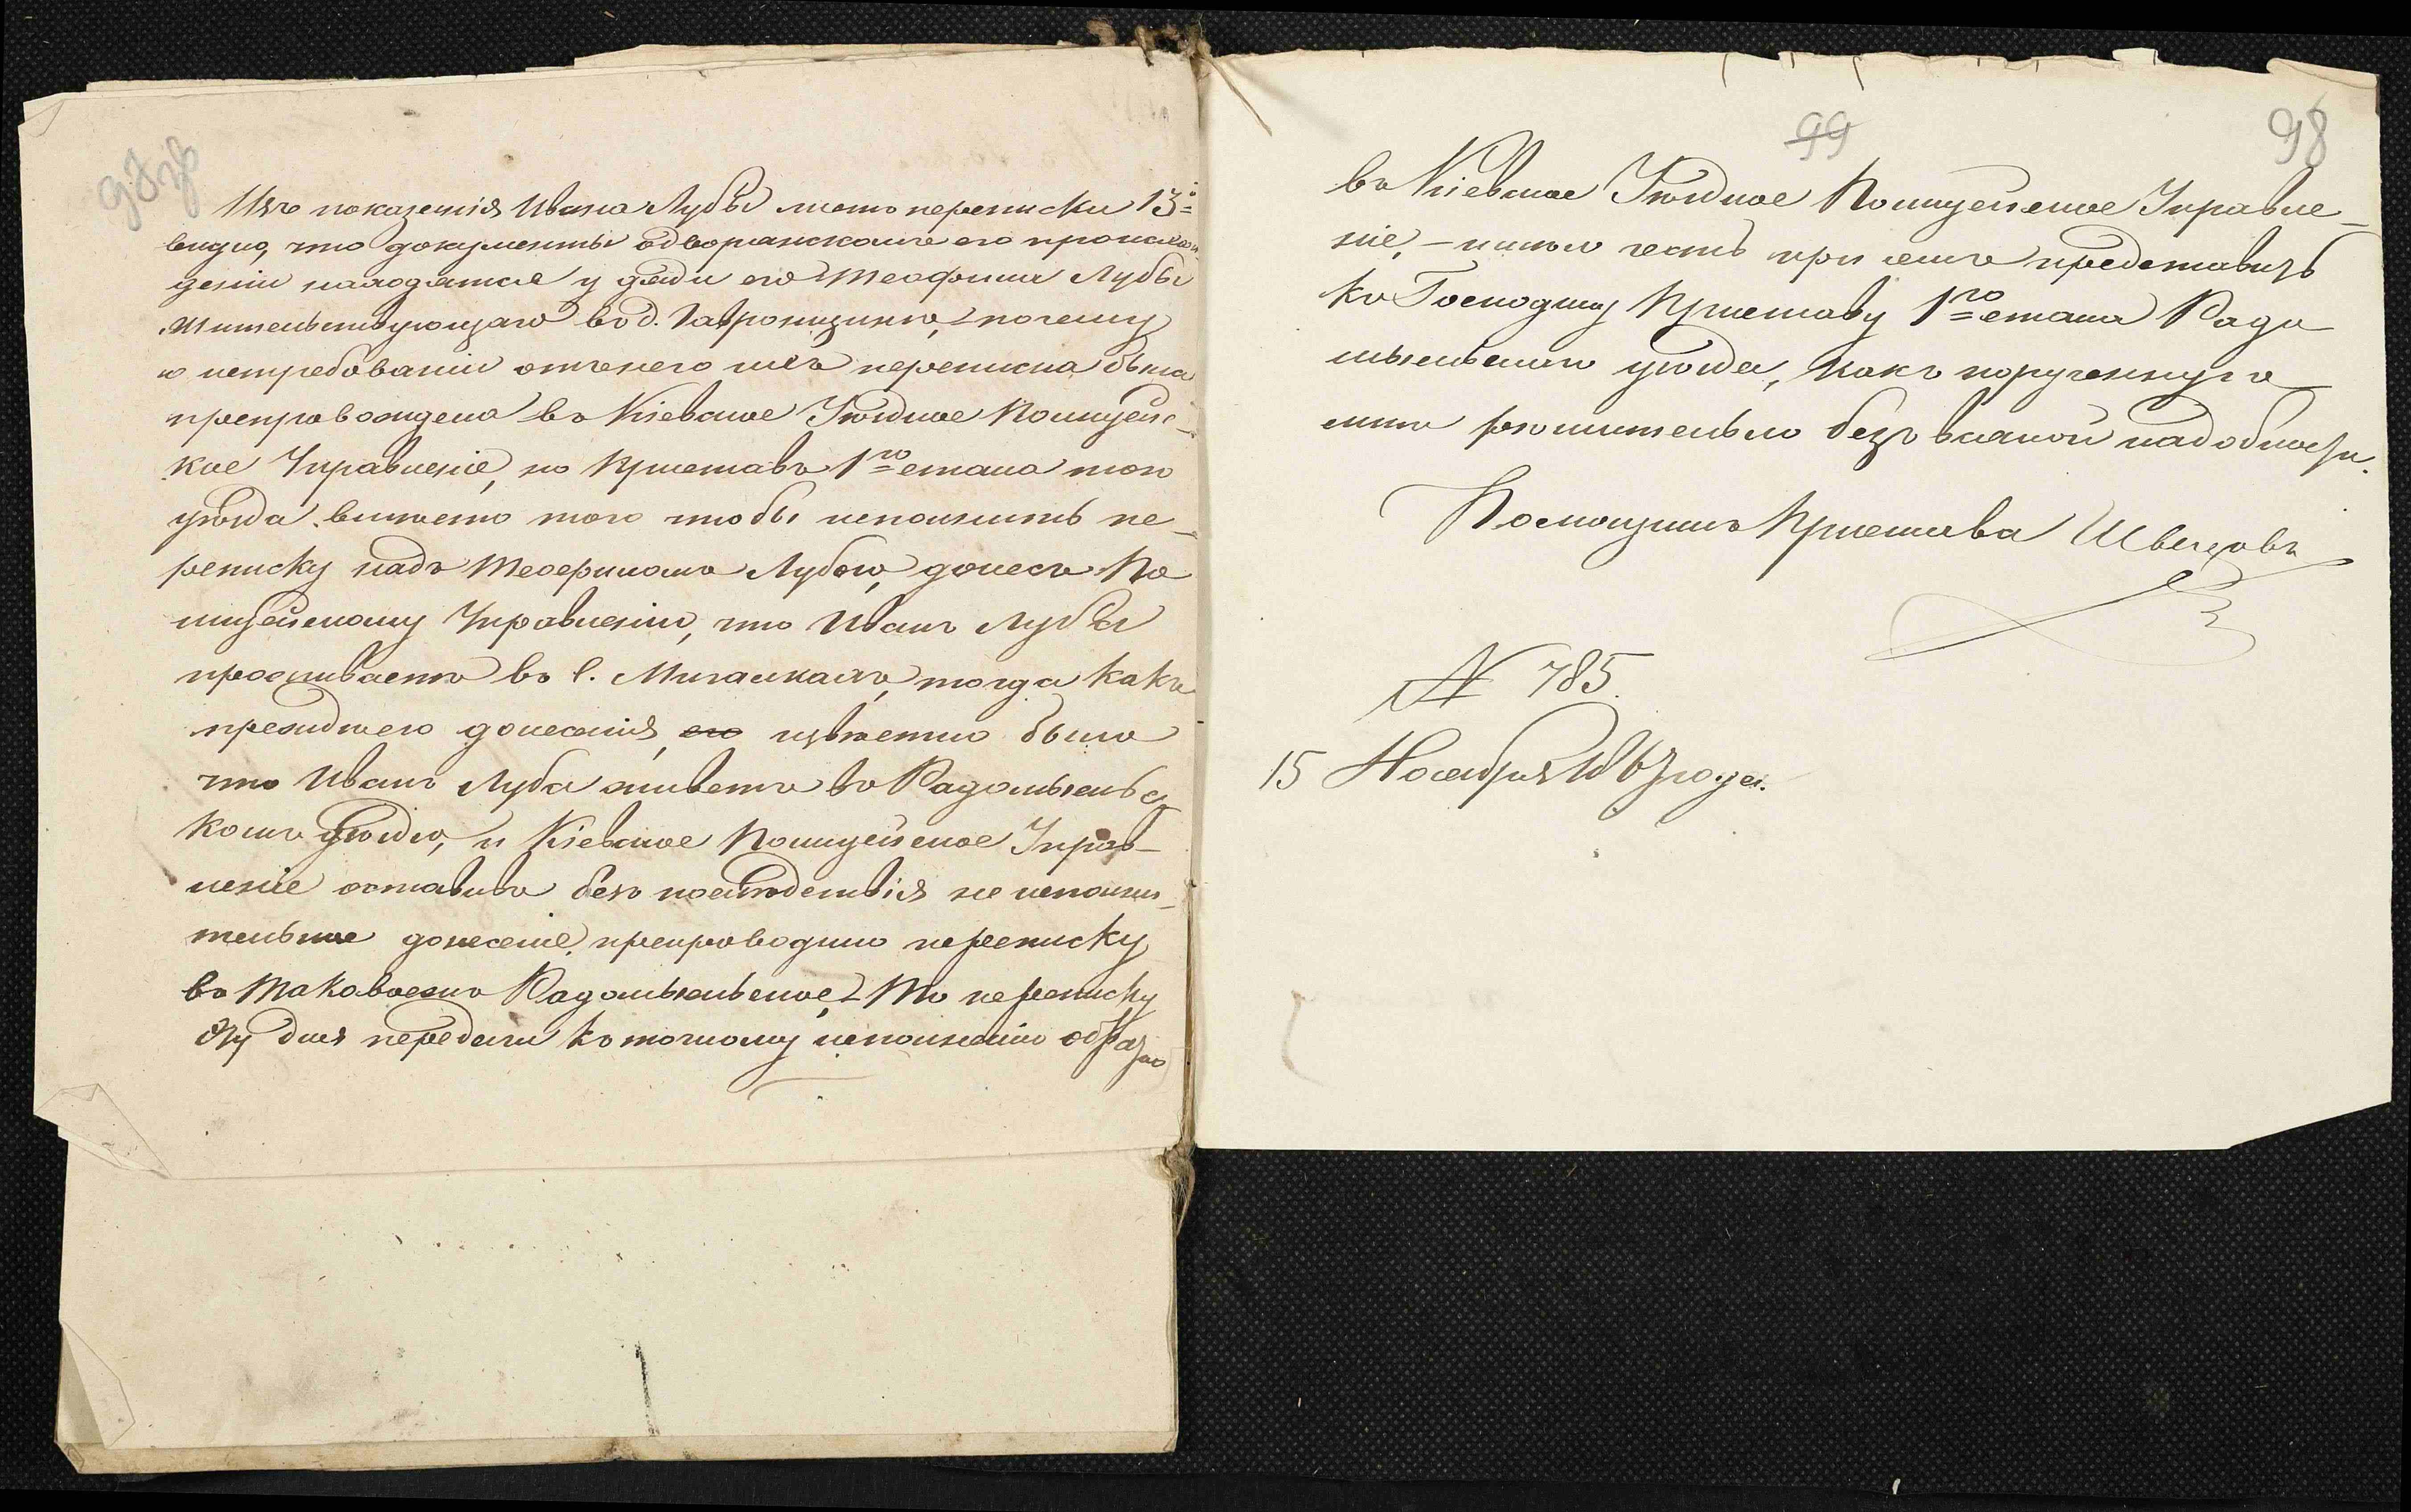 97 об
Изъ показанія Ивана Лубы листъ переписки 13й
видно, что документы о дворянскомъ его происхож
деніи находятся у дяди его Теофила Лубы
жительствующаго въ д. Гавронщинѣ, – почему
о истребованіи отъ него ихъ переписка была
препровождена въ Кіевское Уѣздное Полицейс-
кое Управленіе, но Приставъ 1го стана того
уѣзда вмѣсто того чтобы исполнить пе-
реписку надъ Теофиломъ Лубою, донесъ По
лицейскому Управленію, что Иванъ Луба
проживаетъ въ с. Мигалкахъ, тогда какъ
прежднего донесенія, его извѣстно было
что Иванъ Луба живетъ въ Радомысльс
комъ уѣздѣ, и Кіевское Полицейское Управ-
леніе оставивъ безъ послѣдствія не исполни-
тельное донесеніе, препроводило переписку
въ таковоежъ Радомысльское, – То переписку
эту для передачи къ точному исполненію обратно
99
98
въ Кіевское Уѣздное Полицейское Управле-
ніе, – имѣю честь при семъ представить
къ Господину Приставу 1го стана Радо
мысльскаго уѣзда, какъ порученную
мнѣ рѣшительно безъ всякой надобности.
Помощникъ Пристава Швецовъ
N 785.
15 Ноября 1867 года.